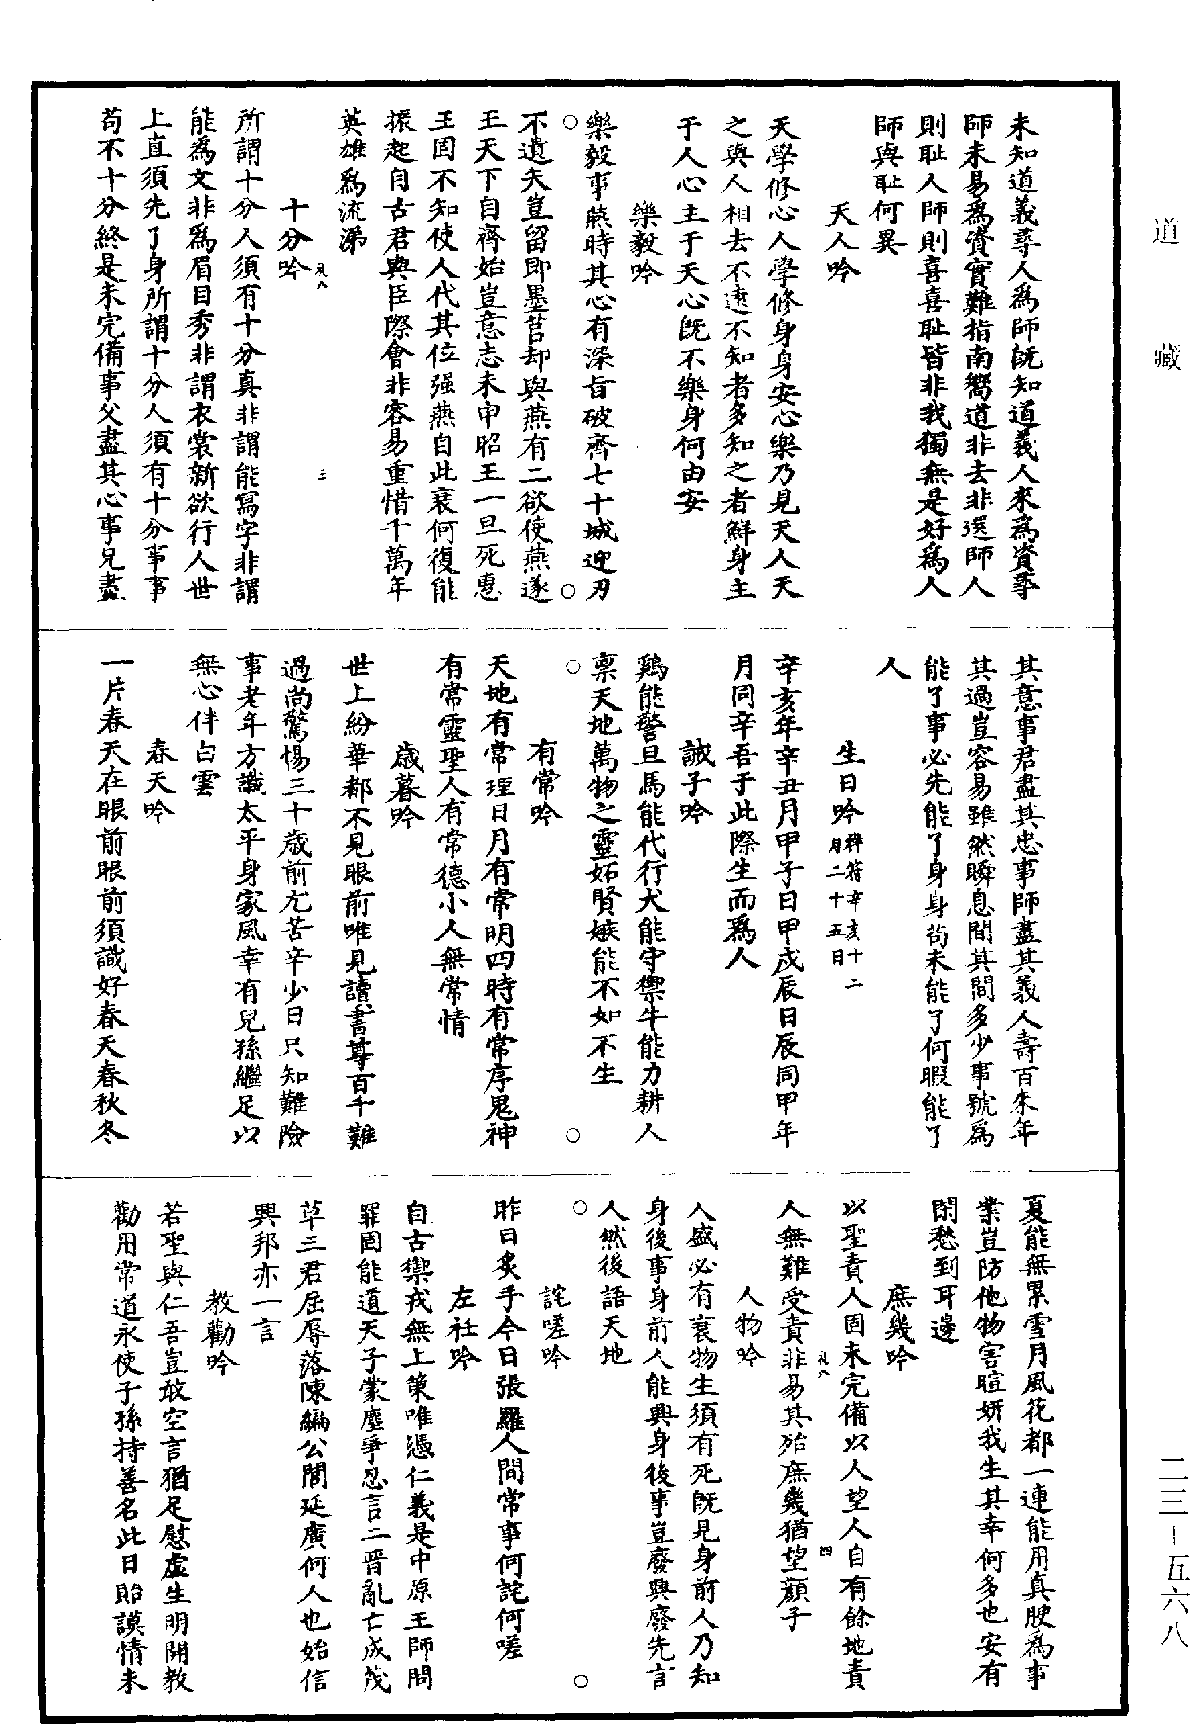 道藏
未知道義尋人為師既知道義人來為資尋
師未易為資實難指南嚮道非去非還師人
則耻人師則喜喜耻皆非我獨無是好為人
師與耻何異
天人吟
天學修心人學修身身安心樂乃見天人天
之與人相去不遠不知者多知之者鮮身主
于人心主于天心既不樂身何由安
樂毅吟
樂毅事燕時其心有深旨破齊七十城迎刃
不遺矢豈留即墨莒却與燕有二欲使燕遂
王天下自齊始豈意志未申昭王一旦死惠
王固不知使人代其位强燕自此衰何復能
振起自古君與臣際會非容易重惜千萬年
英雄為流涕
十分吟
所謂十分人須有十分真非謂能寫字非謂
能為文非為眉目秀非謂衣裳新欲行人世
上直須先了身所謂十分人須有十分事事
苟不十分終是未完備事父盡其心事兄盡
其意事君盡其忠事師盡其義人壽百來年
其過豈容易雖然瞬息間其間多少事號為
能了事必先能了身身苟未能了何暇能了
人
生日吟 祥符辛亥十二
月二十五日
辛亥年辛丑月甲子日甲戌辰日辰同甲年
月同辛吾于此際生而為人
誡子吟
鷄能警旦馬能代行犬能守禦牛能力耕人
禀天地萬物之靈妬賢嫉能不如不生
有常吟
天地有常理日月有常明四時有常序鬼神
有常靈聖人有常德小人無常情
歲暮吟
世上紛華都不見眼前唯見讀書尊百千難
過尚驚惕三十歲前尤苦辛少日只知難險
事老年方識太平身家風幸有兒孫繼足以
無心伴白雲
春天吟
一片春天在眼前眼前須識好春天春秋冬
夏能無累雪月風花都一連能用真腴為事
業豈防他物害暄妍我生其幸何多也安有
閑愁到耳邊
庶幾吟
以聖責人固未完備以人望人自有餘地責
人無難受責非易其殆庶幾猶望顏子
人物吟
人盛必有衰物生須有死既見身前人乃知
身後事身前人能興身後事豈廢興廢先言
人然後語天地
詫嗟吟
昨日炙手今日張羅人間常事何詫何嗟
左衽吟
自古禦戎無上策唯憑仁義是中原王師問
罪固能道天子蒙塵爭忍言二晋亂亡成茂
草三君屈辱落陳編公閭延廣何人也始信
興邦亦一言
教勸吟
若聖與仁吾豈敢空言猶足慰虛生明開教
勸用常道永使子孫持善名此日貽謨情未
二三-五六八